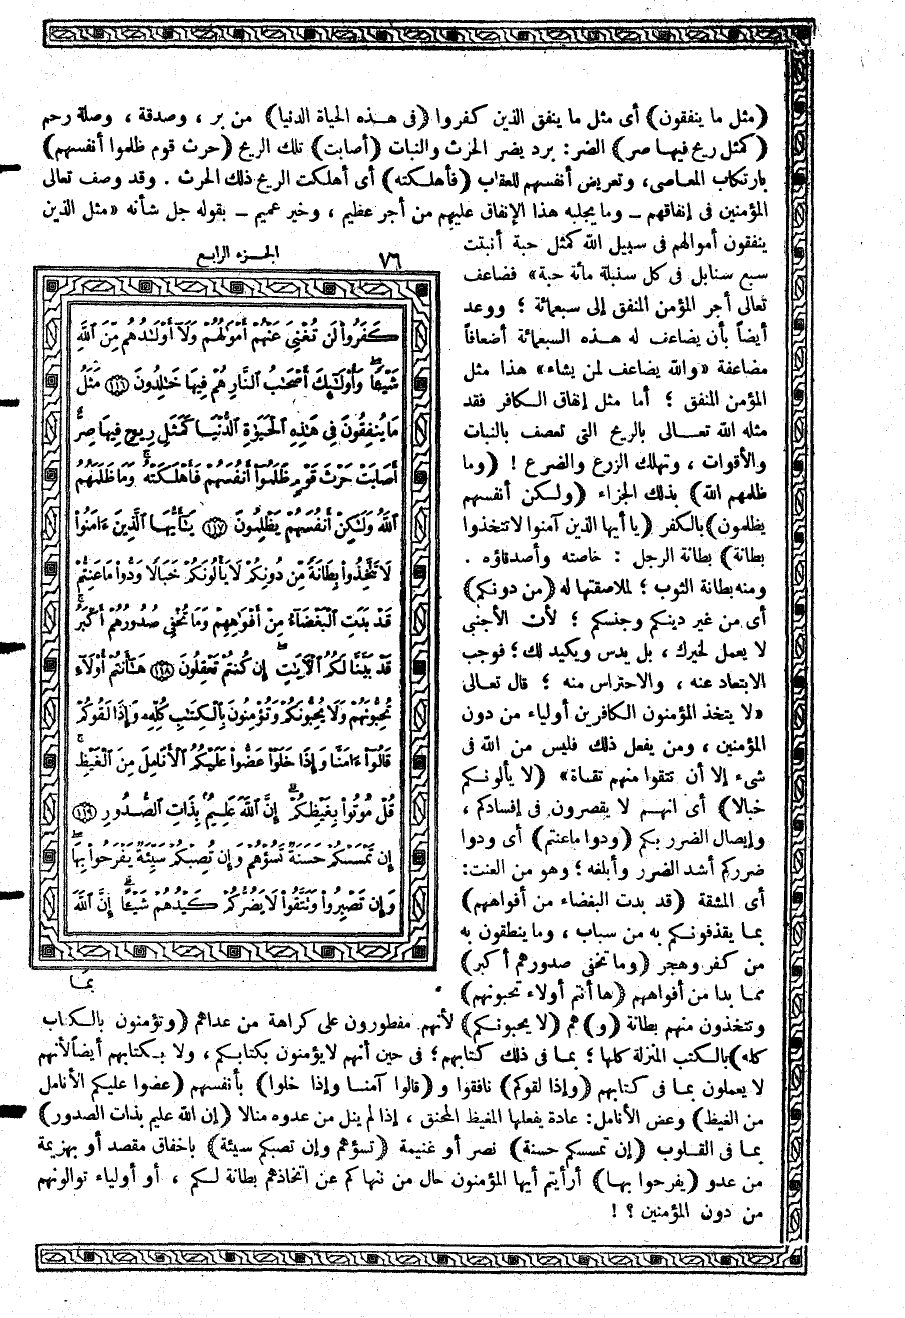 (مثل ما ينفقون) أى مثل ما ينفق الذين كفروا (فى هـذه الحياة الدنيا) من بر ، وصدقة ، وصلة رحم
(كمثل ريح فيهـا صر) الصر: برد يضر الحرث والنبات (أصابت) تلك الريح (حرث قوم ظلموا أنفسهم)
بارتكاب المعاصى، وتعريض أنفسهم للعقاب (فأهلكته) أى أهلكت الريح ذلك الحرث . وقد وصف تعالى
المؤمنين فى إنفاقهم ــ وما يجلبه هذا الإنفاق عليهم من أجر عظيم ، وخير عميم ــ بقوله جل شأنه «مثل الذين
ينفقون أموالهم فى سبيل الله كمثل حبة أنبتت
سبع سنابل فى كل سنبلة مائة حبة» فضاعف
تعالى أجر المؤمن المنفق إلى سبعمائة ؛ ووعد
أيضاً بأن يضاعف له هـذه السبعمائة أضعافاً
مضاعفة «والله يضاعف لمن يشاء» هذا مثل
المؤمن المنفق ؛ أما مثل إنفاق الـكافر فقد
مثله الله تعـالى بالريح التى تعصف بالنبات
والأقوات ، وتهلك الزرع والضرع ! (وما
ظلمهم الله) بذلك الجزاء (ولـكن أنفسهم
يظلمون) بالكفر (يا أيها الذين آمنوا لا تتخذوا
بطانة) بطانة الرجل : خاصته وأصدقاؤه .
ومنه بطانة الثوب ؛ لملاصقتها له (من دونكم)
أى من غير دينكم وجنسكم ؛ لأن الأجنبى
لا يعمل لخيرك ، بل يدس ويكيد لك ؛ فوجب
الابتعاد عنه ، والاحتراس منه ؛ قال تعـالى
«لا يتخذ المؤمنون الكافرين أولياء من دون
المؤمنين ، ومن يفعل ذلك فليس من الله فى
شىء إلا أن تتقوا منهم تقـاة» (لا يألونـكم
خبالا) أى انهـم لا يقصرون فى إفسادكم ،
وإيصال الضرر بـكم (ودوا ماعنتم) أى ودوا
ضرركم أشد الضرر وأبلغه ؛ وهو من العنت:
أى المشقة (قد بدت البغضاء من أفواههم)
بمـا يقذفونـكم به من سباب ، وما ينطقون به
من كفر وهجر (وما تخفى صدورهم أكبر)
ممـا بدا من أفواههم (ها أنتم أولاء تحبونهم)
الجـزء الرابع
٧٦
كَفَرُوا۟ لَن تُغْنِىَ عَنْهُمْ أَمْوَٰلُهُمْ وَلَآ أَوْلَـٰدُهُم مِّنَ ٱللَّهِ
شَيْـًٔا ۖ وَأُو۟لَـٰٓئِكَ أَصْحَـٰبُ ٱلنَّارِ هُمْ فِيهَا خَـٰلِدُونَ ﴿١١٦﴾ مَثَلُ
مَا يُنفِقُونَ فِى هَـٰذِهِ ٱلْحَيَوٰةِ ٱلدُّنْيَا كَمَثَلِ رِيحٍ فِيهَا صِرٌّ
أَصَابَتْ حَرْثَ قَوْمٍ ظَلَمُوٓا۟ أَنفُسَهُمْ فَأَهْلَكَتْهُ ۚ وَمَا ظَلَمَهُمُ
ٱللَّهُ وَلَـٰكِنْ أَنفُسَهُمْ يَظْلِمُونَ ﴿١١٧﴾ يَـٰٓأَيُّهَا ٱلَّذِينَ ءَامَنُوا۟
لَا تَتَّخِذُوا۟ بِطَانَةً مِّن دُونِكُمْ لَا يَأْلُونَكُمْ خَبَالًا وَدُّوا۟ مَا عَنِتُّمْ
قَدْ بَدَتِ ٱلْبَغْضَآءُ مِنْ أَفْوَٰهِهِمْ وَمَا تُخْفِى صُدُورُهُمْ أَكْبَرُ ۚ
قَدْ بَيَّنَّا لَكُمُ ٱلْـَٔايَـٰتِ ۖ إِن كُنتُمْ تَعْقِلُونَ ﴿١١٨﴾ هَـٰٓأَنتُمْ أُو۟لَآءِ
تُحِبُّونَهُمْ وَلَا يُحِبُّونَكُمْ وَتُؤْمِنُونَ بِٱلْكِتَـٰبِ كُلِّهِۦ وَإِذَا لَقُوكُمْ
قَالُوٓا۟ ءَامَنَّا وَإِذَا خَلَوْا۟ عَضُّوا۟ عَلَيْكُمُ ٱلْأَنَامِلَ مِنَ ٱلْغَيْظِ ۚ
قُلْ مُوتُوا۟ بِغَيْظِكُمْ ۗ إِنَّ ٱللَّهَ عَلِيمٌۢ بِذَاتِ ٱلصُّدُورِ ﴿١١٩﴾
إِن تَمْسَسْكُمْ حَسَنَةٌ تَسُؤْهُمْ وَإِن تُصِبْكُمْ سَيِّئَةٌ يَفْرَحُوا۟ بِهَا ۖ
وَإِن تَصْبِرُوا۟ وَتَتَّقُوا۟ لَا يَضُرُّكُمْ كَيْدُهُمْ شَيْـًٔا ۗ إِنَّ ٱللَّهَ
بِمَا
وتتخذون منهم بطانة (و) هم (لا يحبونـكم) لأنهم مفطورون على كراهة من عداهم (وتؤمنون بالـكتاب
كله) بالـكتب المنزلة كلها ؛ بمـا فى ذلك كتابهم ؛ فى حين أنهم لايؤمنون بكتابـكم ، ولا بـكتابهم أيضاً لأنهم
لا يعملون بمـا فى كتابهم (وإذا لقوكم) نافقوا و (قالوا آمنـا وإذا خلوا) بأنفسهم (عضوا عليكم الأنامل
من الغيظ) وعض الأنامل: عادة يفعلها المغيظ المحنق ، إذا لم ينل من عدوه منالا (إن الله عليم بذات الصدور)
بمـا فى القـلوب (إن تمسسكم حسنة) نصر أو غنيمة (تسؤهم وإن تصبكم سيئة) بإخفاق مقصد أو بهزيمة
من عدو (يفرحوا بهـا) أرأيتم أيها المؤمنون حال من نهـاكم عن اتخاذهم بطانة لـكم ، أو أولياء توالونهم
من دون المؤمنين ؟ !